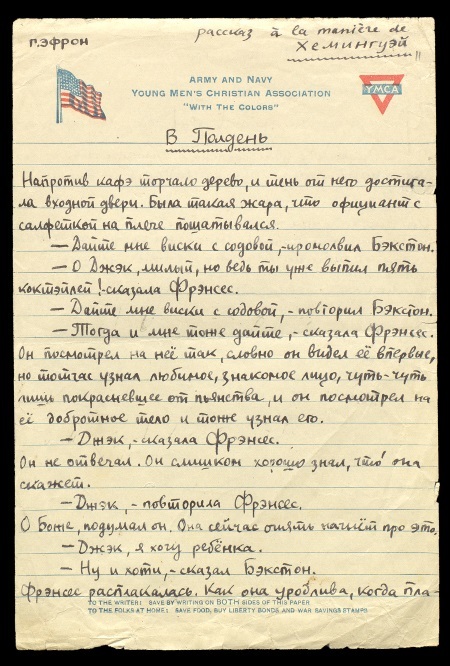 Г. ЭФРОН
рассказ à la manière de
Хемингуэй
ARMY AND NAVY
YOUNG MEN'S CHRISTIAN ASSOCIATION
"WITH THE COLORS"
YMCA
В Полдень
Напротив кафэ торчало дерево, и тень от него достига-
ла входной двери. Была такая жара, что официант с
салфеткой на плече пошатывался.
— Дайте мне виски с содовой, - промолвил Бэкстон.
— О Джэк, милый, но ведь ты уже выпил пять
коктэйлей! - сказала Фрэнсес.
— Дайте мне виски с содовой, - повторил Бэкстон.
— Тогда и мне тоже дайте, - сказала Фрэнсес.
Он посмотрел на неё так, словно он видел её впервые,
но тотчас узнал любимое, знакомое лицо, чуть-чуть
лишь покрасневшее от пьянства, и он посмотрел на
её добротное тело и тоже узнал его.
— Джэк, - сказала Фрэнсес.
Он не отвечал. Он слишком хорошо знал, что она
скажет.
— Джэк, - повторила Фрэнсес.
О Боже, подумал он. Она сейчас опять начнёт про это.
— Джэк, я хочу ребёнка.
— Ну и хоти, - сказал Бэкстон.
Фрэнсес расплакалась. Как она уродлива, когда пла-
TO THE WRITER: SAVE BY WRITING ON BOTH SIDES OF THIS PAPER
TO THE FOLKS AT HOME: SAVE FOOD, BUY LIBERTY BONDS AND WAR SAVINGS STAMPS